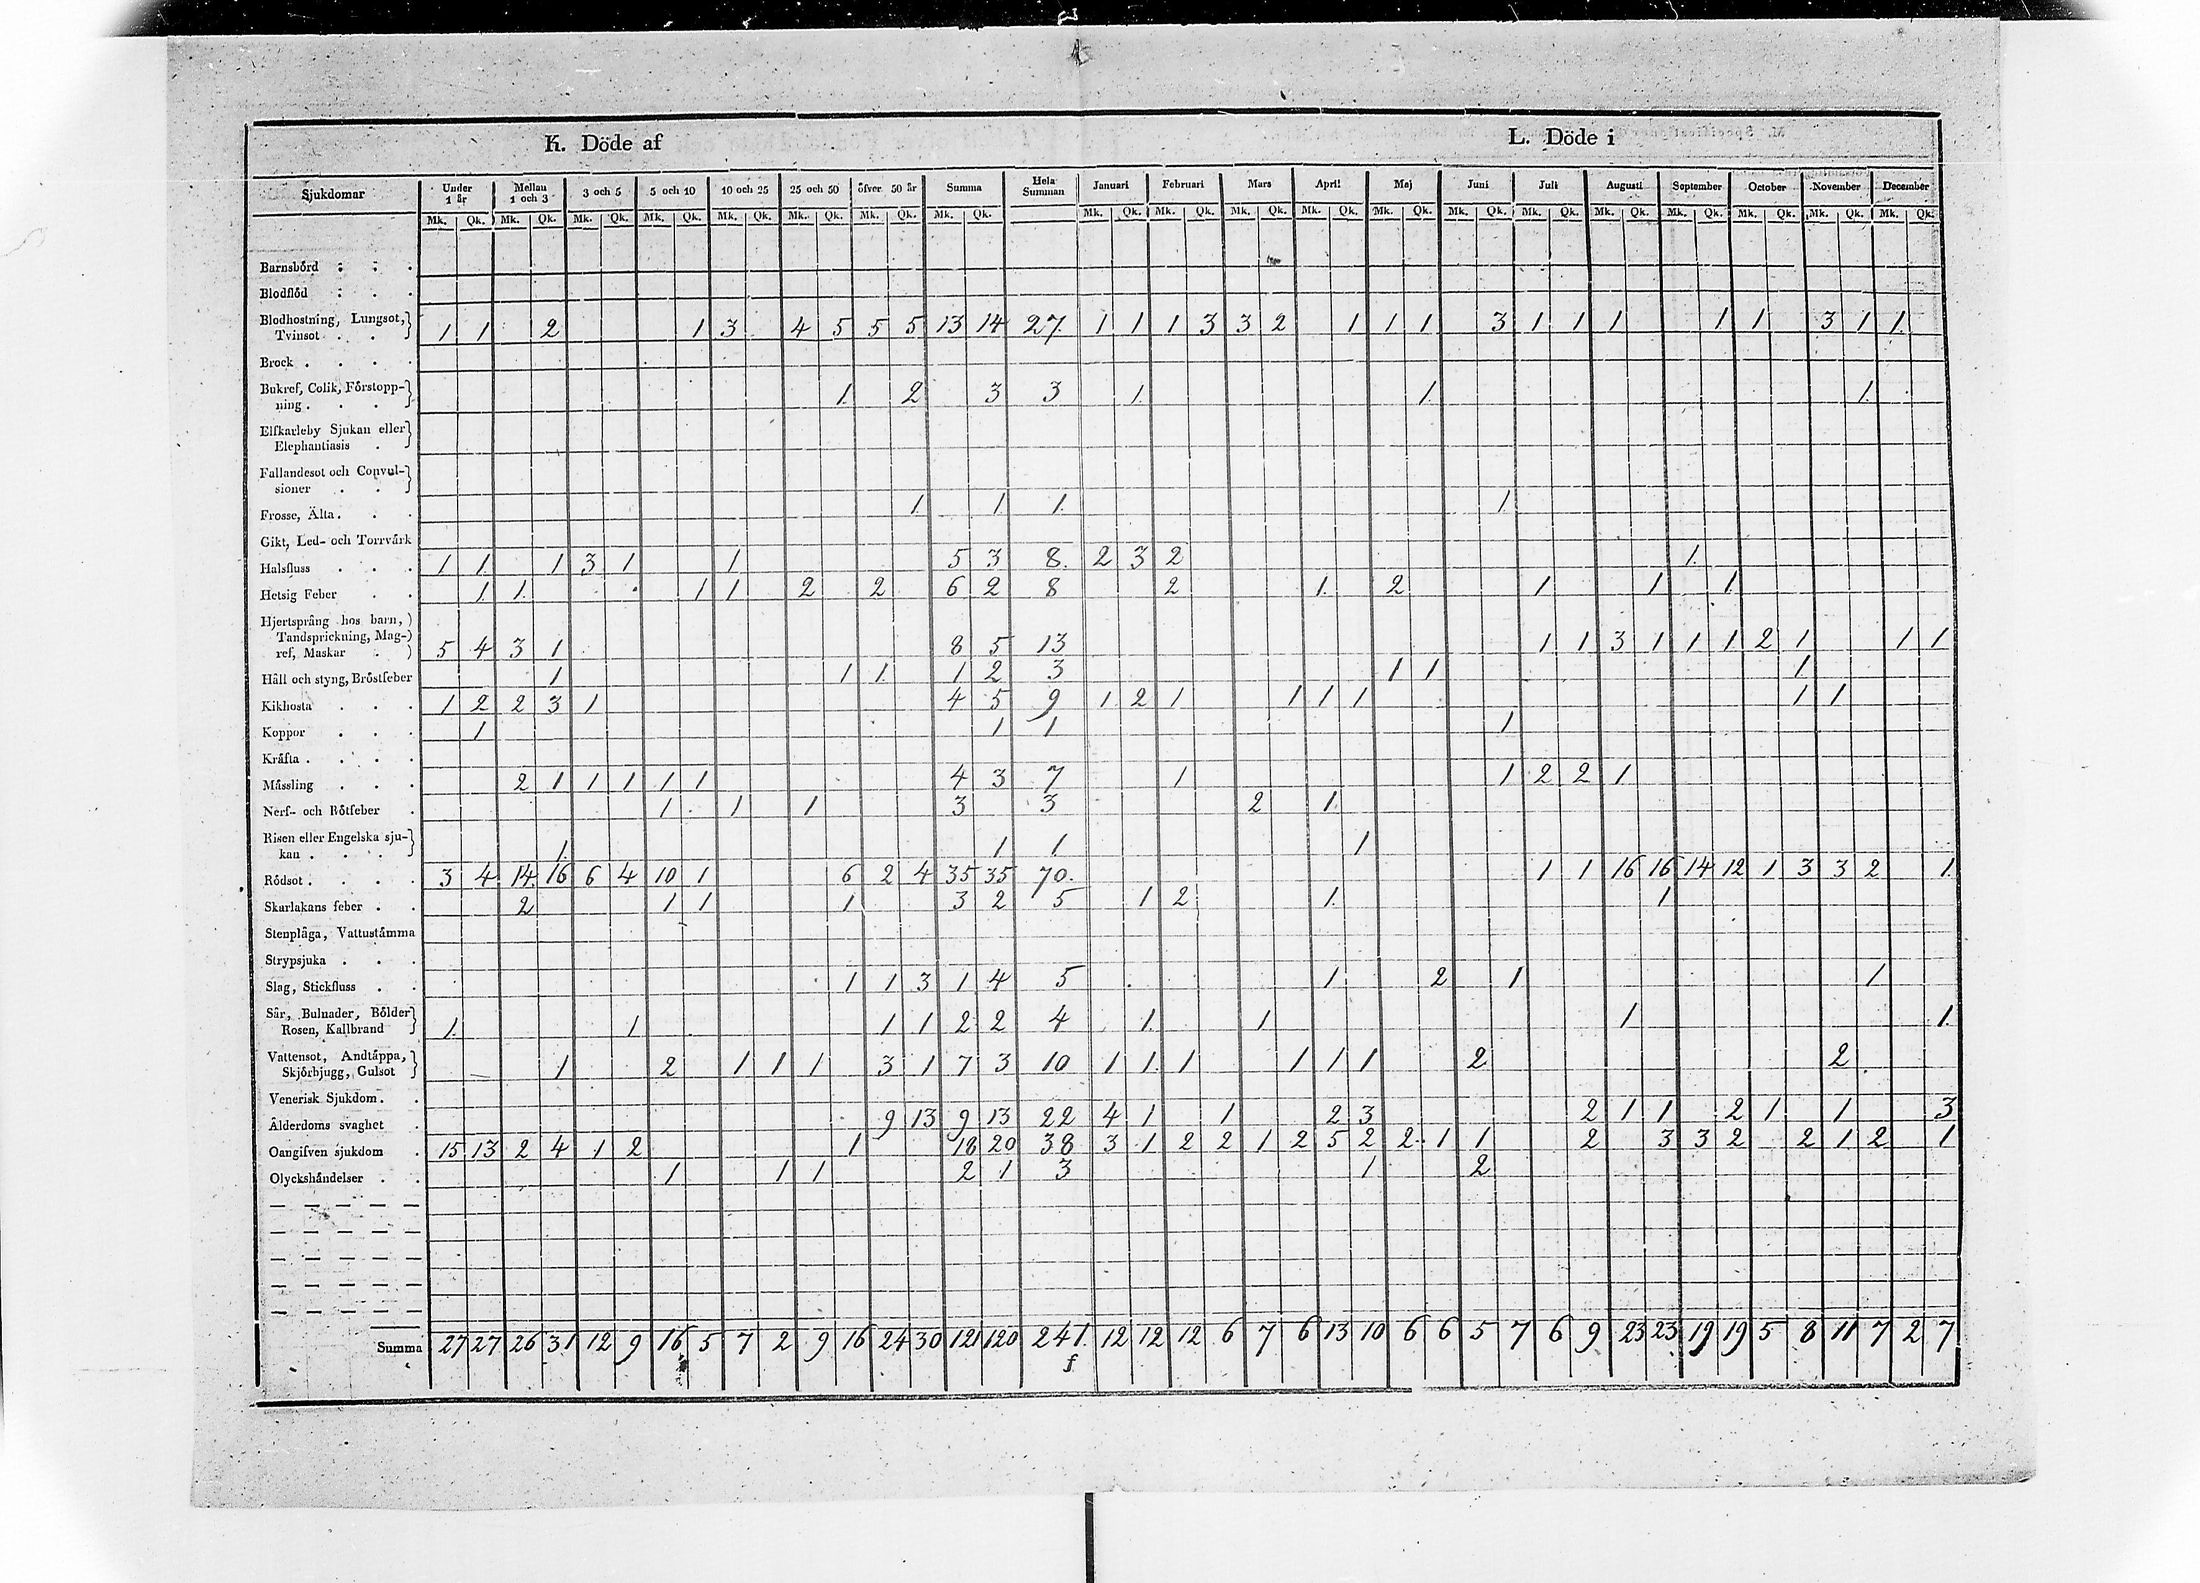 K. Döde af L. Döde i
Sjukdomar Under 1 år Mellan 1 och 3 3 och 5 5 och 10 10 och 25 25 och 50 öfver 50 år Summa Hela Summan Januari Februari Mars April Maj Juni Juli Augusti September October November December
Mk. Qk. Mk. Qk. Mk. Qk. Mk. Qk. Mk. Qk. Mk. Qk. Mk. Qk. Mk. Qk. Mk. Qk. Mk. Qk. Mk. Qk. Mk. Qk. Mk. Qk. Mk. Qk. Mk. Qk. Mk. Qk. Mk. Qk. Mk. Qk. Mk. Qk. Mk. Qk.
Barnsbörd
Blodflöd
Blodhostning, Lungsot,
Tvinsot 1 1 2 1 3 4 5 5 5 13 14 27. 1 1 1 3 3 2 1 1 1 3 1 1 1 1 1 3 1 1
Brock
Bukref, Colik, Förstopp-
ning 1 2 3 3 1 1 1
Elfkarleby Sjukan eller
Elephantiasis
Fallandesot och Convul-
sioner
Frosse, Älta 1 1 1 1
Gikt, Led- och Torrvärk
Halsfluss 1 1 1 3 1 1 5 3 8. 2 3 2 1
Hetsig Feber 1 1 1 1 2 2 6 2 8 2 1 2 1 1 1
Hjertsprång hos barn,
Tandsprickning, Mag-
ref, Maskar 5 4 3 1 8 5 13 1 1 3 1 1 1 2 1 1 1
Håll och styng, Bröstfeber 1 1 1 1 2 3 1 1 1
Kikhosta 1 2 2 3 1 4 5 9 1 2 1 1 1 1 1 1
Koppor 1 1 1 1
Kräfta
Mässling 2 1 1 1 1 1 4 3 7 1 1 2 2 1
Nerf- och Rötfeber 1 1 1 3 3 2 1
Risen eller Engelska sju-
kan 1 1 1 1
Rödsot 3 4 14 16 6 4 10 1 6 2 4 35 35 70. 1 1 16 16 14 12 1 3 3 2 1
Skarlakans feber 2 1 1 1 3 2 5 1 2 1 1
Stenplåga, Vattustämma
Strypsjuka
Slag, Stickfluss 1 1 3 1 4 5 1 2 1 1
Sår, Bulnader, Bölder
Rosen, Kallbrand 1 1 1 1 2 2 4 1 1 1 1
Vattensot, Andtäppa,
Skjörbjugg, Gulsot 1 2 1 1 1 3 1 7 3 10 1 1 1 1 1 1 2 2
Venerisk Sjukdom
Ålderdoms svaghet 9 13 9 13 22 4 1 1 2 3 2 1 1 2 1 1 3
Oangifven sjukdom 15 13 2 4 1 2 1 18 20 38 3 1 2 2 1 2 5 2 2 1 1 2 3 3 2 2 1 2 1
Olyckshändelser 1 1 1 2 1 3 1 2
Summa 27 27 26 31 12 9 16 5 7 2 9 16 24 30 121 120 241. 12 12 12 6 7 6 13 10 6 6 5 7 6 9 23 23 19 19 5 8 11 7 2 7